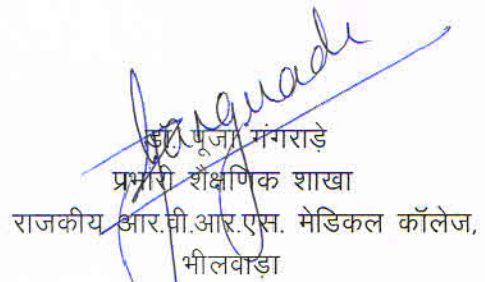 Gangrade
डॉ. पूजा गंगराड़े
प्रभारी शैक्षणिक शाखा
राजकीय आर.वी.आर.एस. मेडिकल कॉलेज,
भीलवाड़ा